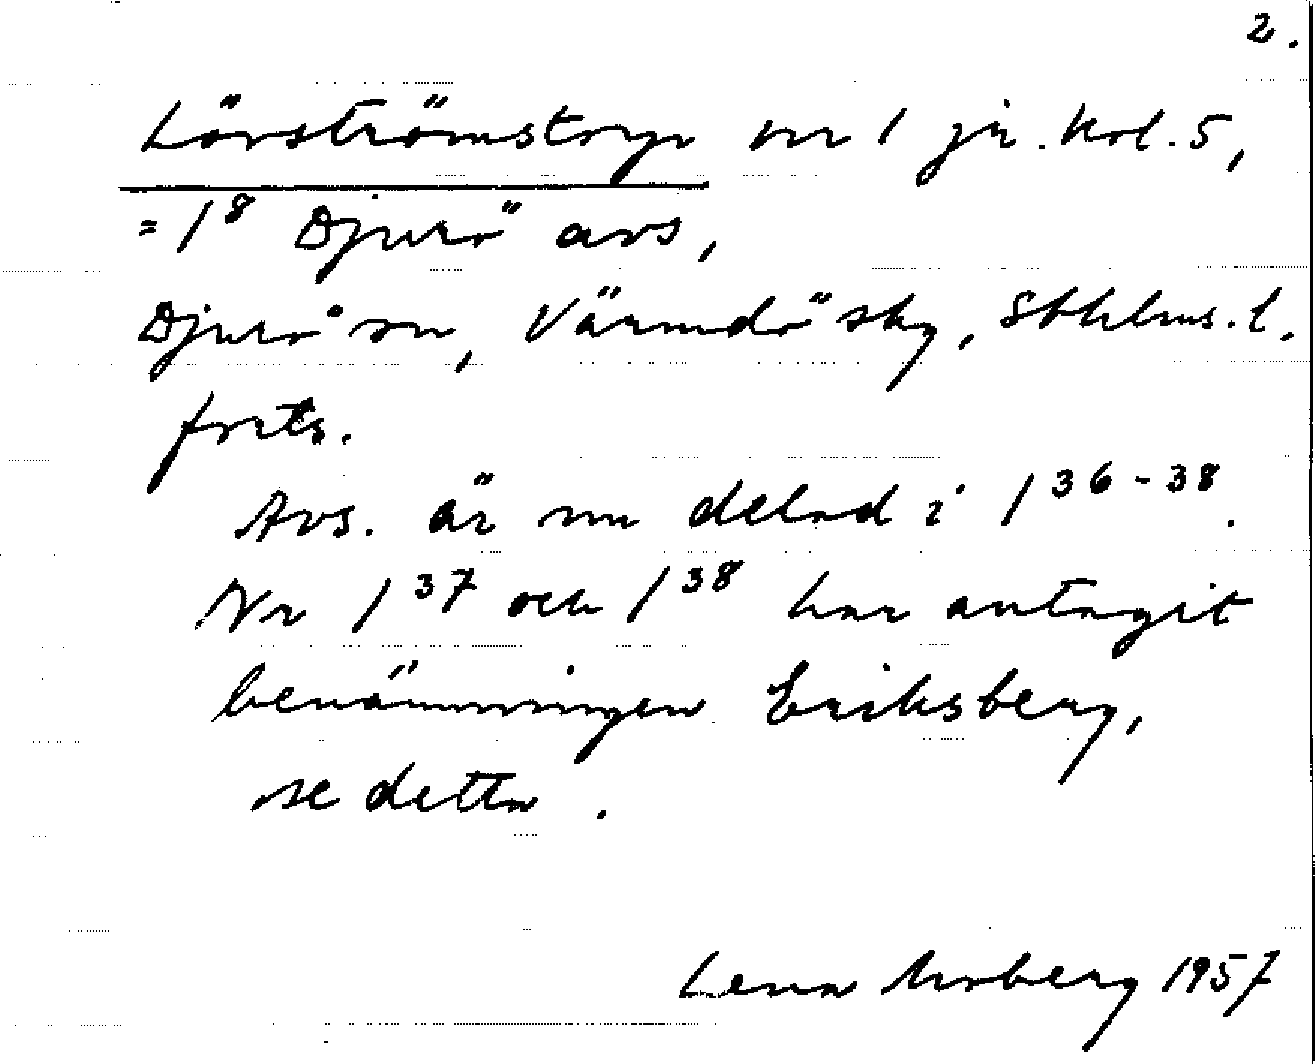 2.
Lövströmstorp nr 1 jr. kol. 5,
= 1⁸ Djurö avs,
Djurö sn, Värmdö skg, Sthlms. l.
forts.
Avs. är nu delad i 1³⁶⁻³⁸.
Nr 1³⁷ och 1³⁸ har antagit
benämningen Eriksberg,
se detta.
Lena Moberg 1957